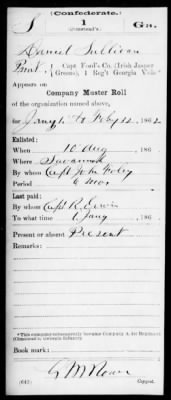 (Confederate.)
S 1 Ga.
Daniel Sullivan
Privt, Capt Foley's Co. (Irish Jasper
Greens), 1 Reg't Georgia Vols.*
Appears on
Company Muster Roll
of the organization named above,
for Jany 1 to Feby 22, 1862
Enlisted:
When 10 Aug, 186
Where Savannah
By whom Capt John Foley
Period 6 mos
Last paid:
By whom Capt R. Erwin
To what time 1 Jany, 186
Present or absent Present
Remarks:
*This company subsequently became Company A, 1st Regiment
(Olmstead's) Georgia Infantry.
Book mark:
(642) Copyist.